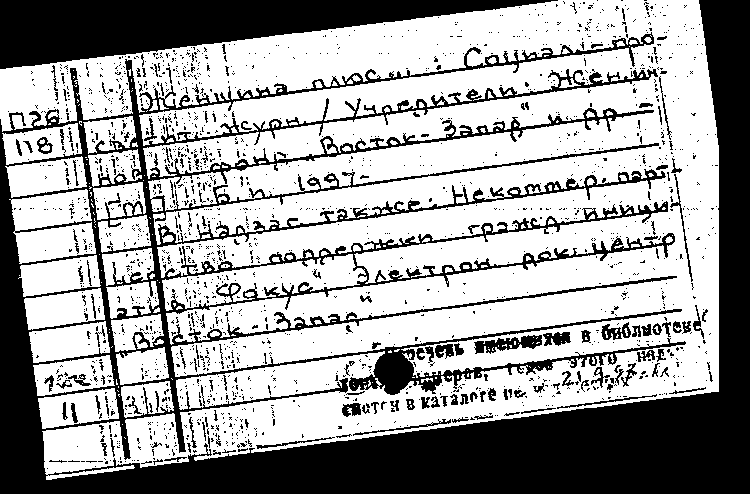 П26
118
Женщина плюс... : Социал.-про-
светит. журн. / Учредители: Жен. ин-
новац. фонд "Восток-Запад" и др. -
[М.] : Б. и., 1997-
В надзаг. также: Некоммер. парт-
нерство поддержки гражд. иници-
атив "Фокус", Электрон. док. центр
"Восток-Запад"
Перечень имеющихся в библиотеке
томов, номеров, годов этого изд.
смотри в каталоге пе
21.9.97
11